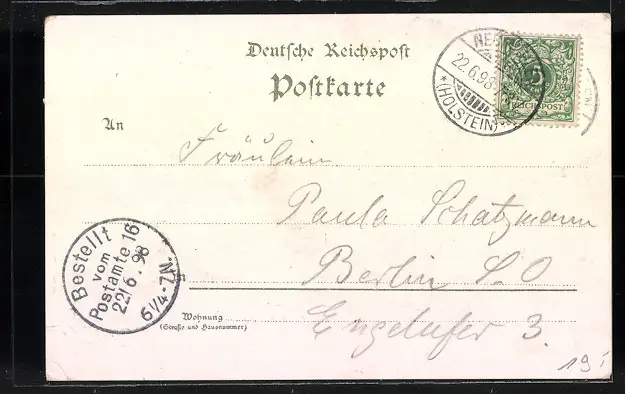 Deutsche Reichspost
Postkarte
22.6.98
*(HOLSTEIN)
5
REICHSPOST
An
Fräulein
Paula Schatzmann
Berlin S.O
in
Wohnung
(Straße und Hausnummer)
Engelufer 3.
Bestellt
vom
Postamte 16
22/6.98
6¼-7¼N.
19